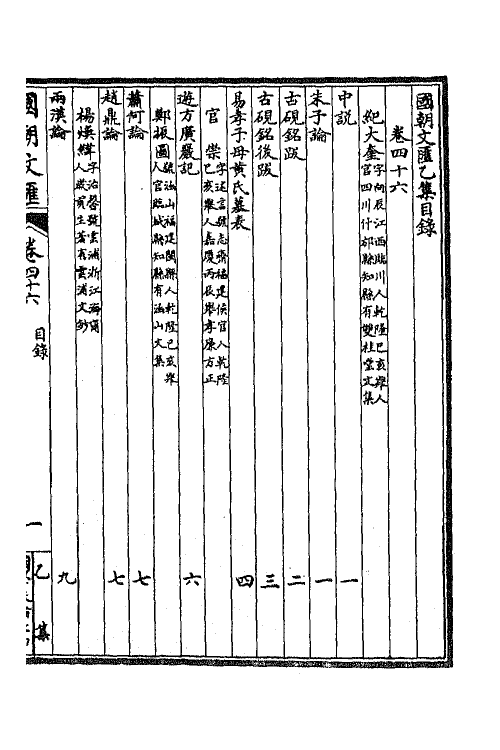 國朝文匯乙集目錄
卷四十六
紀大奎字向辰江西臨川人乾隆己亥舉人
官四川什邡縣知縣有雙桂堂文集
中説 一
朱子論 一
古硯銘跋 二
古硯銘後跋 三
易孝子母黃氏墓表 四
官崇字述言號志齋福建侯官人乾隆
己亥舉人嘉慶丙辰舉孝廉方正
遊方廣巖記 六
鄭振圖號涵山福建閩縣人乾隆己亥舉
人官臨城縣知縣有涵山文集
蕭何論 七
趙鼎論 七
楊煥綸字治馨號雲浦浙江海甯
人歲貢生著有雲浦文鈔
兩漢論 九
國朝文匯 卷四十六 目錄 一 乙集